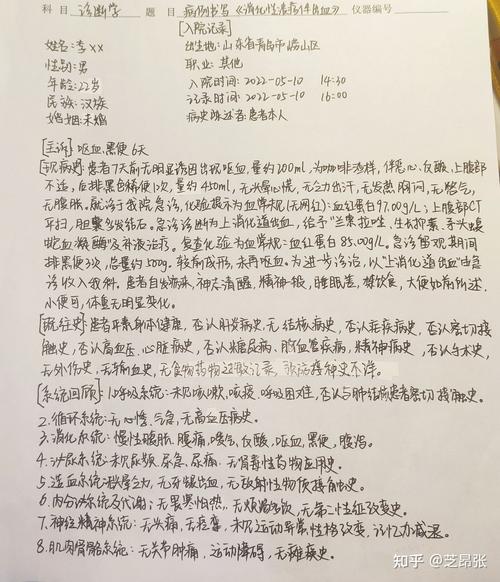 科目 诊断学 题目 病例书写《消化性溃疡伴出血》仪器编号
[入院记录]
姓名:李xx 出生地:山东省青岛市崂山区
性别:男 职业:其他
年龄:22岁 入院时间:2022-05-10 14:30
民族:汉族 记录时间:2022-05-10 16:00
婚姻:未婚 病史陈述者:患者本人
[主诉] 呕血、黑便6天
[现病史]患者7天前无明显诱因出现呕血,量约200ml,为咖啡渣样,伴恶心、反酸、上腹部
不适,自排黑色稀便1次,量约450ml,无头晕心慌,无乏力出汗,无发热胸闷,无嗳气,
无腹胀。就诊于我院急诊,化验提示为血常规(无网红):血红蛋白97.00g/L;上腹部CT
平扫,胆囊多发结石。急诊诊断为上消化道出血,给予"兰索拉唑、生长抑素、矛头蝮
蛇血凝酶"及补液治疗。复查化验为血常规:血红蛋白85.00g/L。急诊留观期间
排黑便3次,总量约500g,较前成形,未再呕血。为进步诊治,以"上消化道出血"由急
诊收入我科。患者自发病来,神志清醒,精神一般,睡眠差,禁饮食,大便如前所述,
小便可,体重无明显变化。
[既往史]患者平素身体健康,否认肝炎病史,无结核病史,否认疟疾病史,否认密切接
触史,否认高血压、心脏病史,否认糖尿病、脑血管疾病,精神病史,否认手术史,
无外伤史,无输血史,无食物药物过敏记录,预防接种史不详。
[系统回顾] 1.呼吸系统:未见咳嗽、咳痰、呼吸困难,否认与肺结核患者密切接触史。
2.循环系统:无心慌、气急,无高血压病史。
3.消化系统:慢性腹胀、腹痛、嗳气、反酸、呕血、黑便、腹泻。
4.泌尿系统:未见尿频、尿急、尿痛,无肾毒性药物应用史。
5.造血系统:乏力,无牙龈出血,无放射性物质接触史。
6.内分泌系统及代谢:无畏寒怕热,无烦渴多饮,无第二性征改变史。
7.神经精神系统:无头痛,无痉挛,未见运动异常,性格改变,记忆力减退。
8.肌肉骨骼系统:无关节肿痛,运动障碍,无瘫痪史。
知乎 @芝昂张